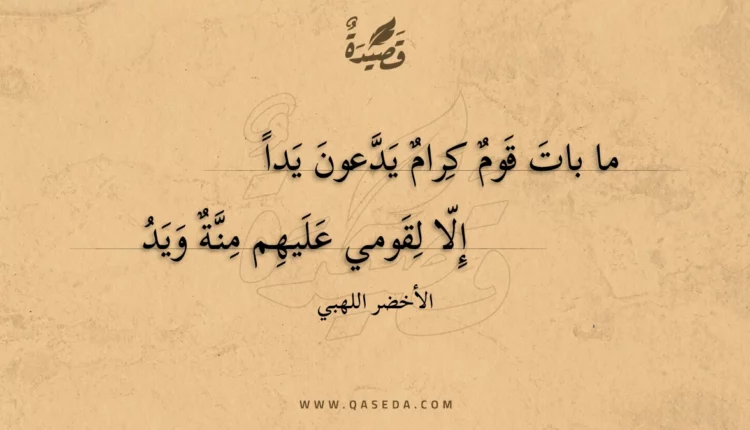 قَصِيدَةٌ
ما باتَ قَومٌ كِرامٌ يَدَّعونَ يَداً
إِلّا لِقَومي عَلَيهِم مِنَّةٌ وَيَدُ
الأخضر اللهبي
WWW.QASEDA.COM